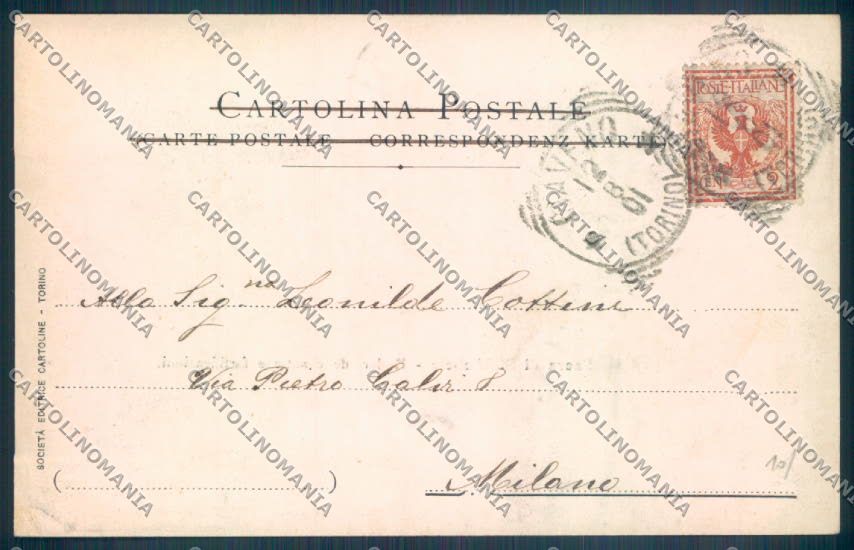 CARTOLINA POSTALE
(CARTE POSTALE - CORRESPONDENZ KARTE)
POSTE ITALIANE
2
(TORINO)
Alla Sig.na Leonilde Cottini
Via Pietro Calvi 8
Milano
SOCIETÀ EDITRICE CARTOLINE - TORINO
10/
CARTOLINOMANIA